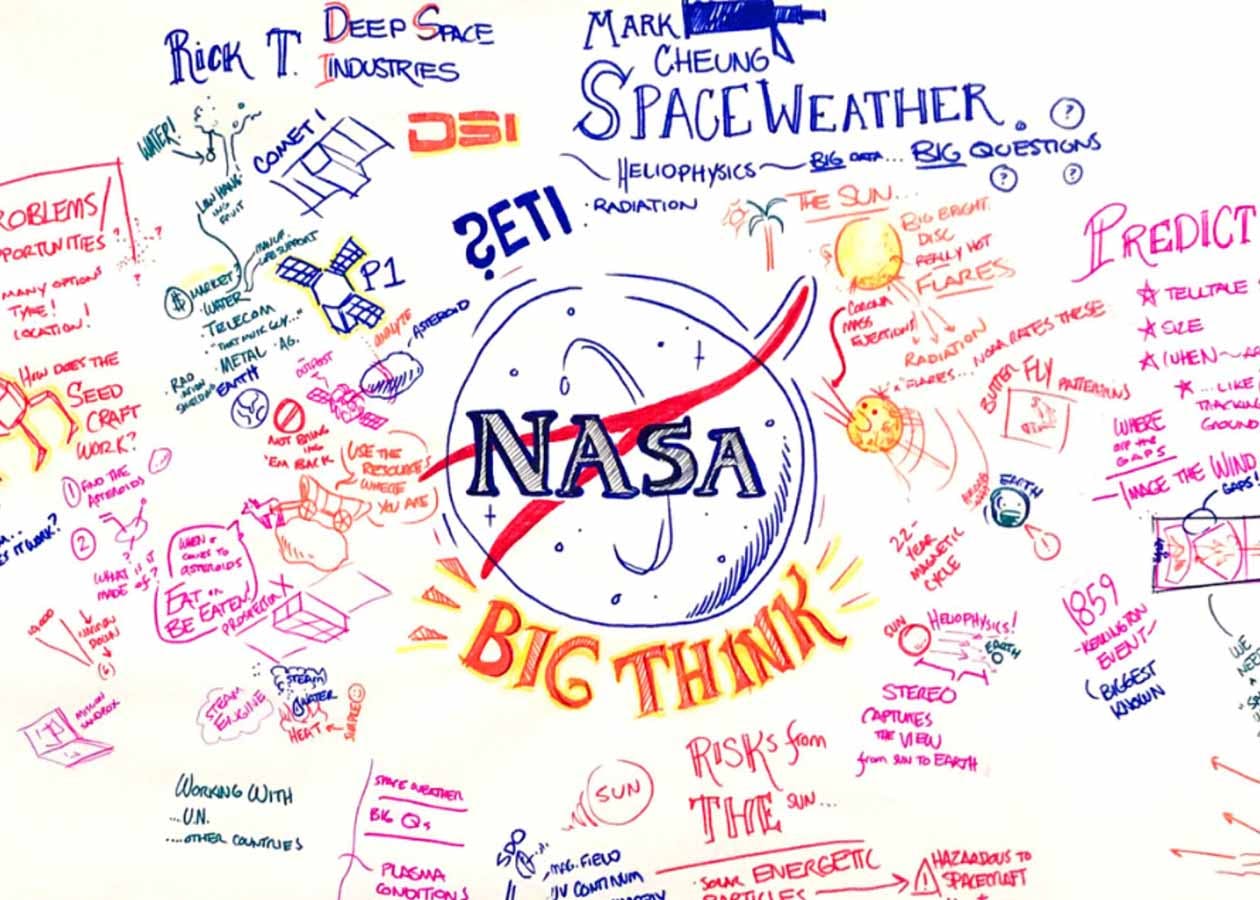 RICK T. DEEP SPACE
INDUSTRIES
WATER!
COMET!
DSI
LOW HANG
ING
FRUIT
ROBLEMS/
PPORTUNITIES?
MANY OPTIONS
TYPE!
LOCATION!
$ MARKET?
WATER
TELECOM
"THAT MUSK GUY..."
METAL AG.
RAD
IATION
SHIELDING
EARTH
P1
ANALYZE
ASTEROID
OUTPOST
NOT BRING
ING
'EM BACK
USE THE
RESOURCES
WHERE
YOU ARE
HOW DOES THE
SEED
CRAFT
WORK?
1 FIND THE
ASTEROIDS
2
WHAT IS IT
MADE OF?
ES IT WORK?
WHEN IT
COMES TO
ASTEROIDS
EAT OR
BE EATEN!
PROSPECTOR X
NARROW
DOWN
(6)
MISSION
SANDBOX
STEAM
ENGINE
(STEAM)
WATER
HEAT
SIMPLE
WORKING WITH
...U.N.
....OTHER COUNTRIES
SPACE WEATHER
BIG Qs
PLASMA
CONDITIONS
SETI
NASA
BIG THINK
MARK
CHEUNG
SPACE WEATHER.
?
HELIOPHYSICS BIG DATA... BIG QUESTIONS
? ?
· RADIATION
THE SUN...
BIG BRIGHT
DISC
REALLY HOT
FLARES
CORONA
MASS
EJECTIONS!
RADIATION
"FLARES... NOAA RATES THESE
BUTTERFLY PATTERNS
EARTH
!
22-
YEAR
MAGNETIC
CYCLE
SUN HELIOPHYSICS!
EARTH
STEREO
CAPTURES
THE VIEW
from SUN TO EARTH
1859
-
EVENT-
(BIGGEST
KNOWN
PREDICT
TELLTALE
SIZE
WHEN
...LIKE
TRACKING
GROUND
WHERE
ARE THE
GAPS
IMAGE THE WIND
GAPS!
WE
NEE
SUN
RISKS from
THE SUN...
SDO
MAG. FIELD
UV CONTINUM
· SOLAR ENERGETIC
PARTICLES
! HAZARDOUS TO
SPACECRAFT